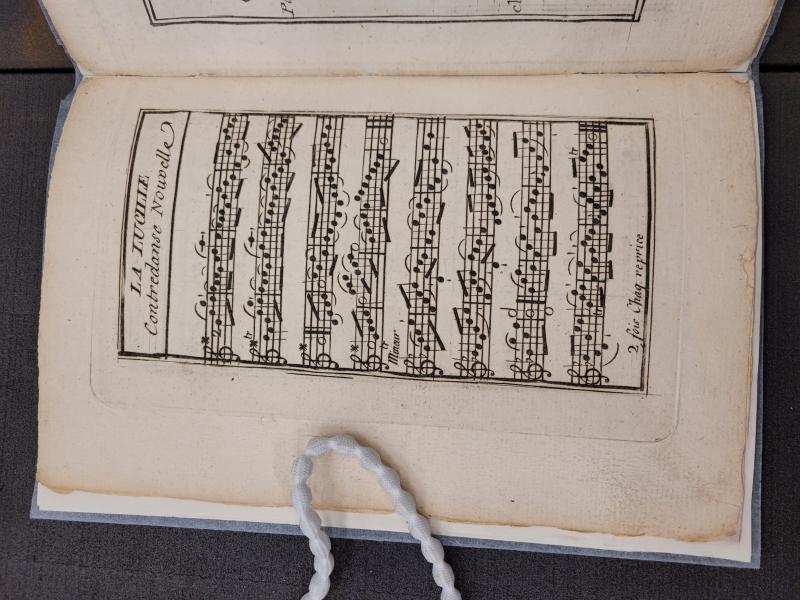 LA LUCILLE
Contredanse Nouvelle
tr
tr
Mineur
tr
2 fois Chaq reprice